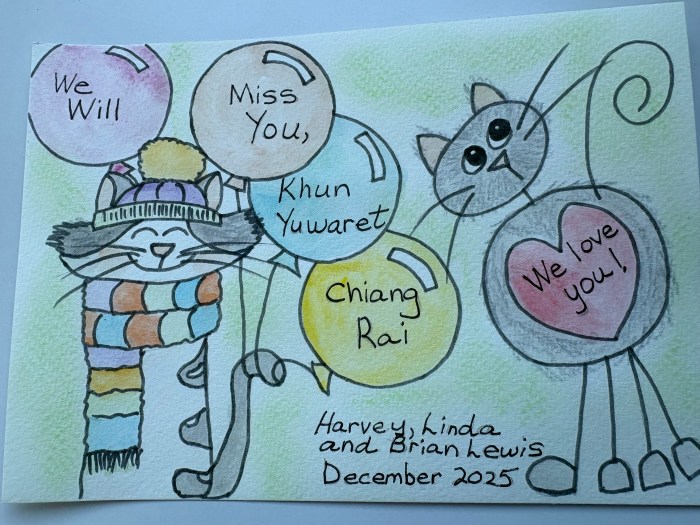 We
Will
Miss
You,
Khun
Yuwaret
Chiang
Rai
We love
you!
Harvey, Linda
and Brian Lewis
December 2025